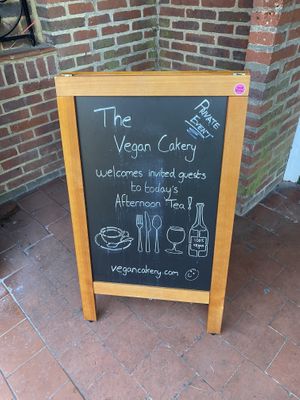 The
Vegan Cakery
PRIVATE
EVENT
welcomes invited guests
to today's
Afternoon Tea!
100%
vegan
vegancakery.com